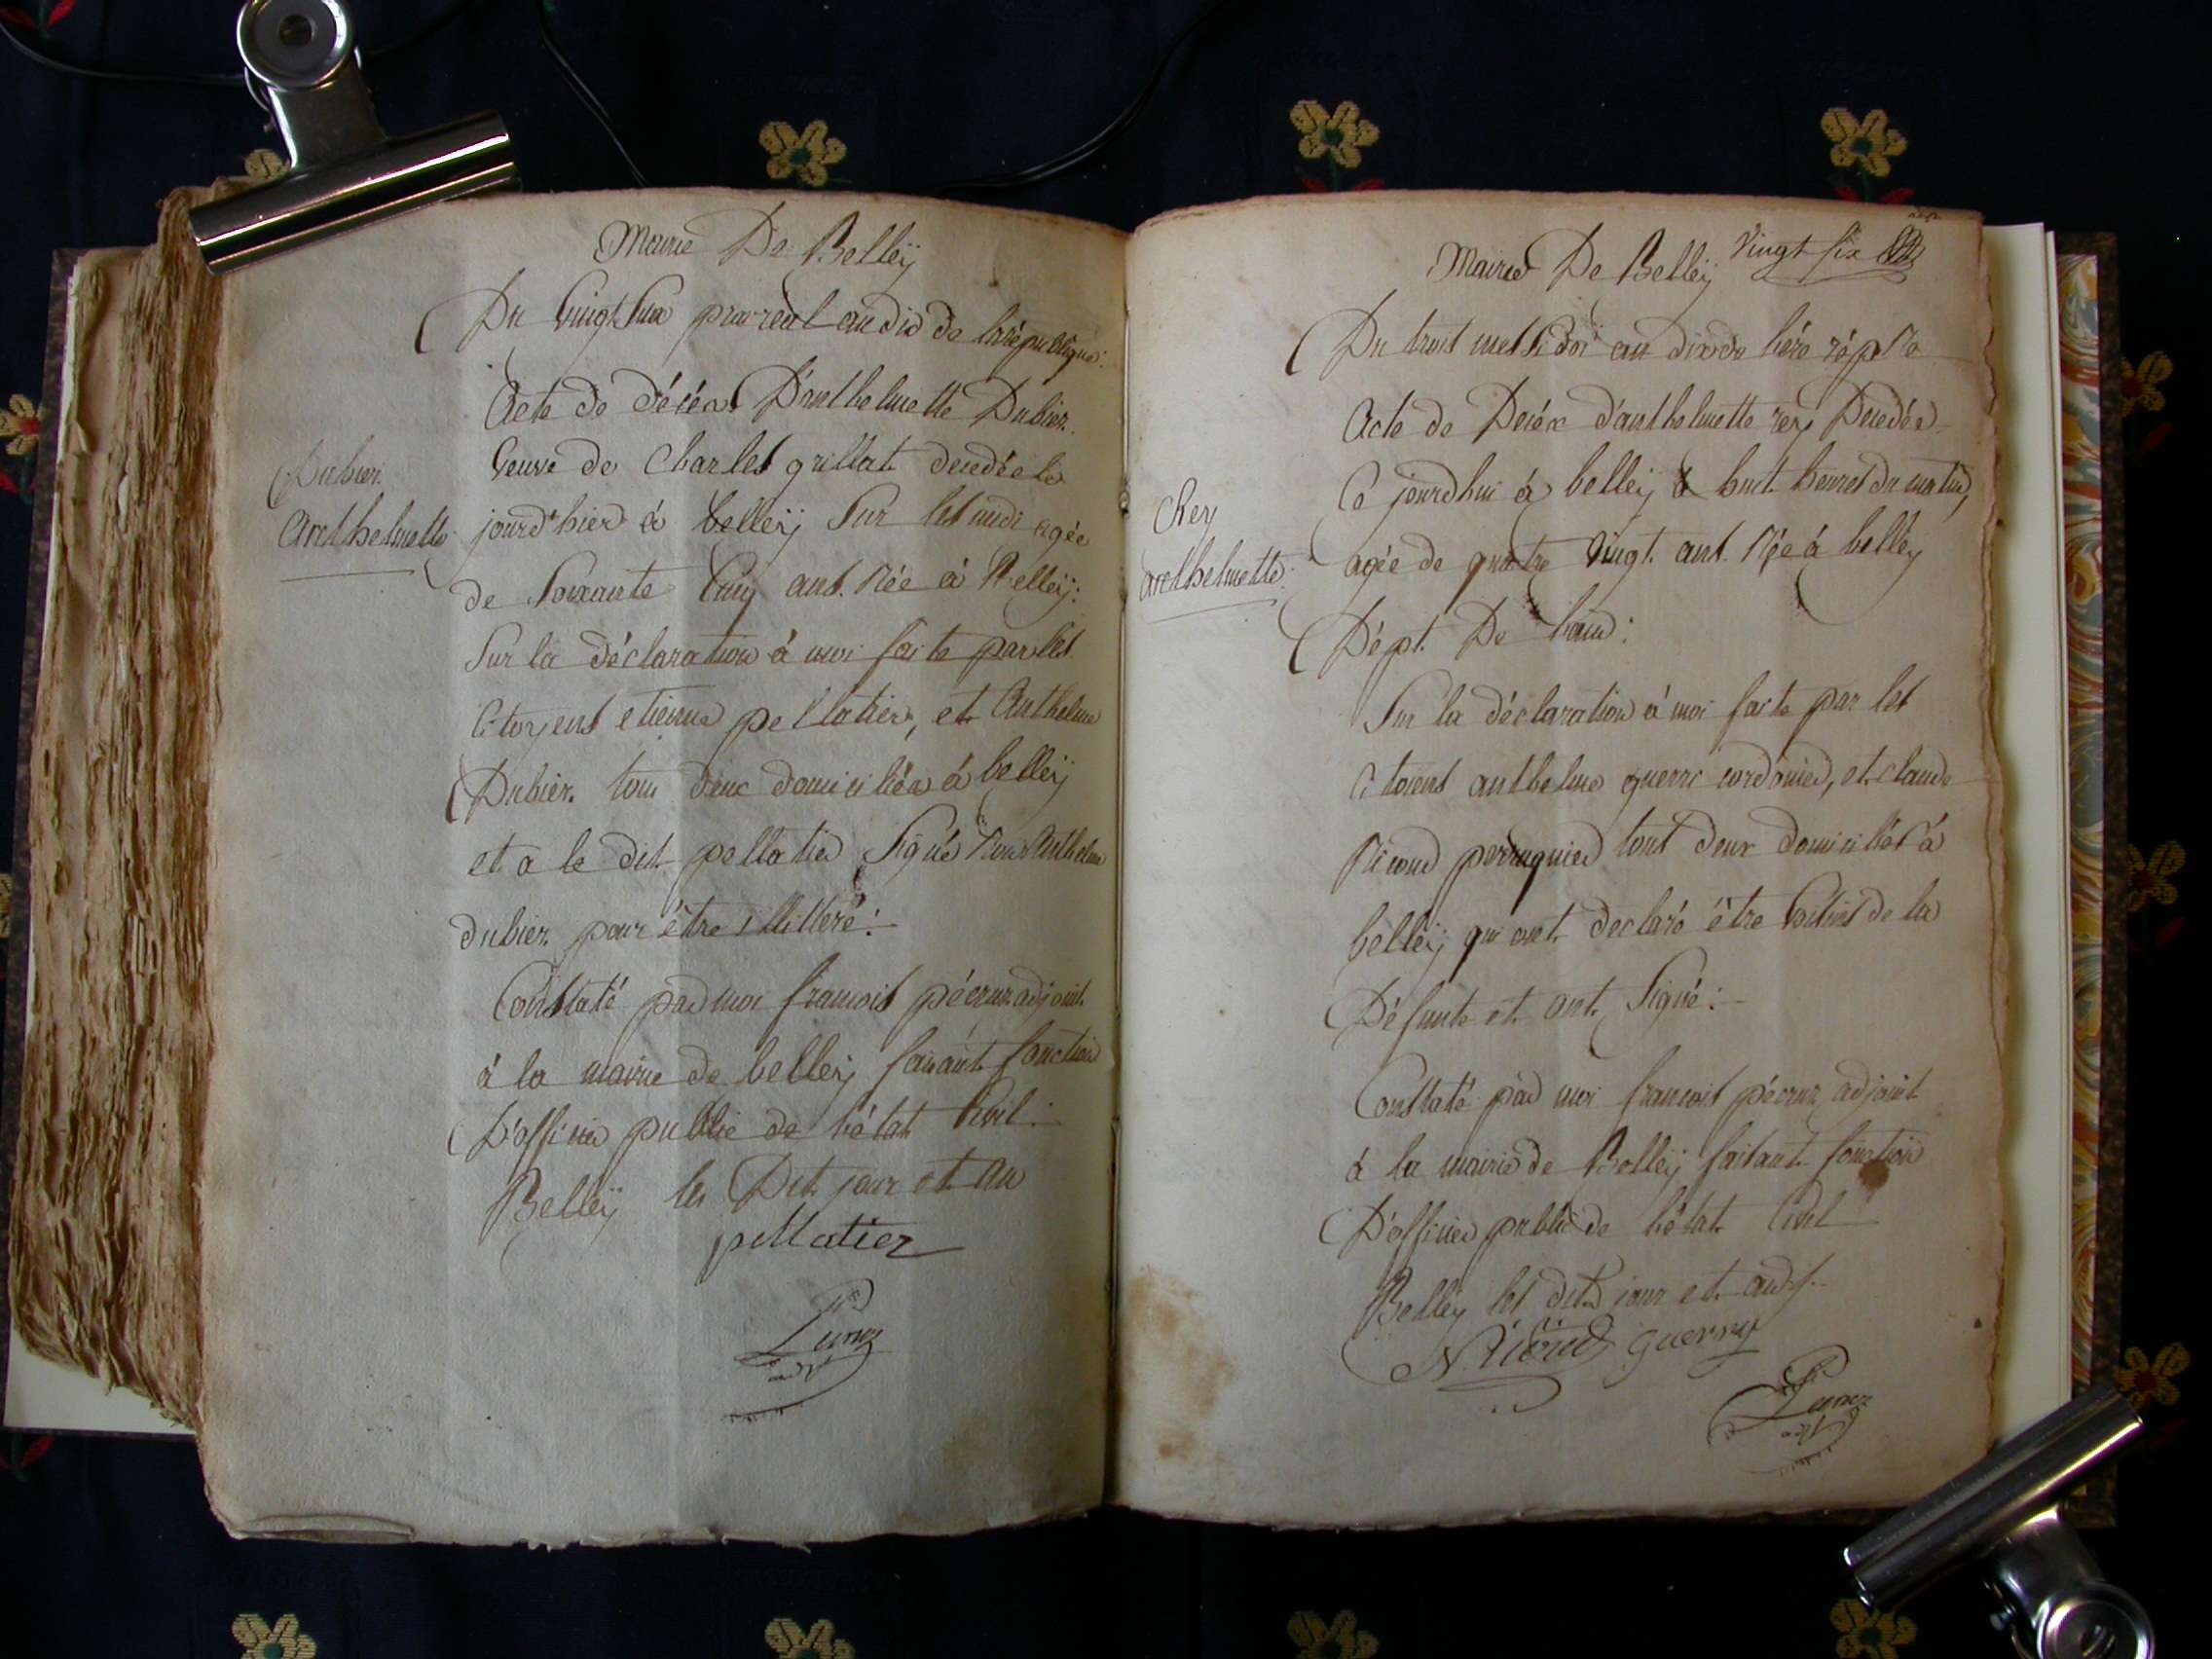 Mairie De Belleÿ
Du Vingt Six prairéal an dix de la république:
Acte de décéx D'anthelmette Dubier.
Veuve de Charles grillat decedée le
Dubier.
Anthelmette
jourd'hier à belleÿ Sur les midi agée
de Soixante Cinq ans. Née à Belleÿ:
Sur la déclaration à moi faite par les
Citoyens etienne pellatier, et Anthelme
Dubier. tous deux domiciliés à belleÿ
et a le dit pellatier Signé Non Anthelme
dubier. pour être illitteré:
Constaté par moi francois pécruz adjoint
à la mairie de belleÿ faisant fonction
D'officier public de l'état Civil:
Belleÿ les Dit jour et an
pellatier
adjt
Mairie De Belleÿ Vingt six
Du trois messidor an dix de l'ére rép
Acte de Decéx d'anthelmette rey Decedée
Ce jourd'hui à belleÿ à huit heures du matin,
Rey
anthelmette:
agée de quatre Vingt ans. Née à belleÿ
Dépt. De l'ain:
Sur la déclaration à moi faite par les
Citoiens anthelme guerrc cordonier, et claude
Nicoud perruquier tous deux domiciliés à
belleÿ qui ont declaré être Voisins de la
Défunte et ont Signé:
Constaté par moi francois pécruz adjoint
à la mairie de Belleÿ faisant fonction
D'officier public de l'état Civil
Belleÿ les dits jour et an
Nicoud guerry
adjt